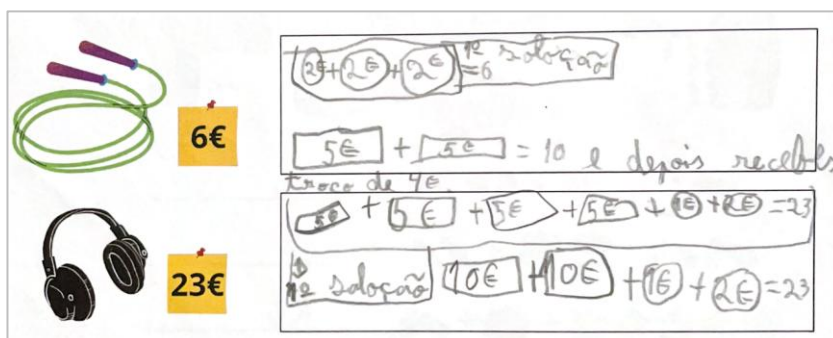 6€
2€+2€+2€=6 1ª soloção
5€ + 5€ = 10 e depois recebes
troco de 4€.
23€
5€ + 5€ + 5€ + 5€ + 1€ + 2€ = 23
1ª soloção 10€ + 10€ + 1€ + 2€ = 23